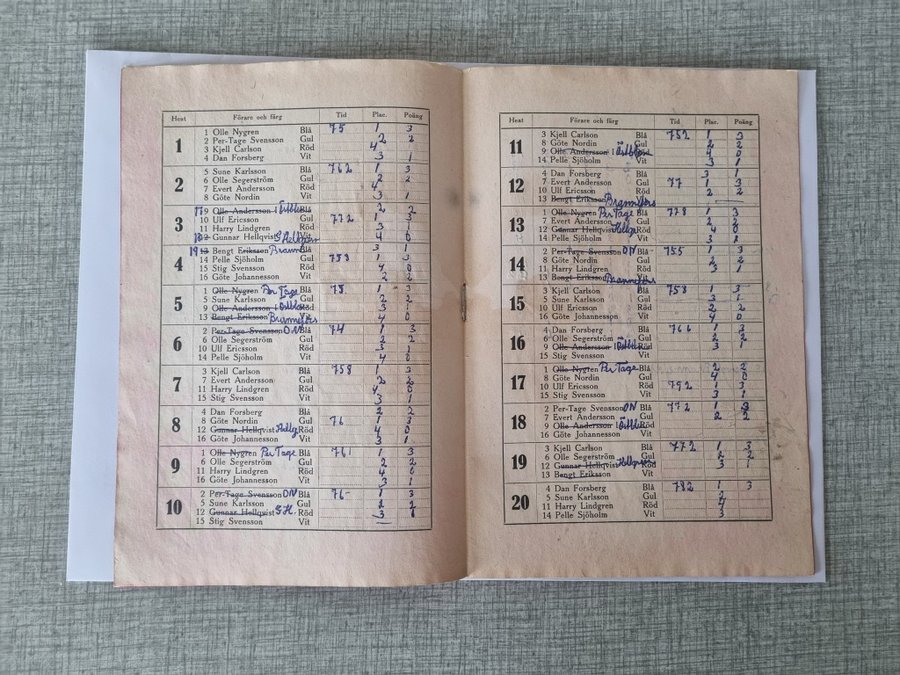 Heat Förare och färg Tid Plac. Poäng
1
1 Olle Nygren Blå 75 1 3
2 Per-Tage Svensson Gul 2 2
3 Kjell Carlson Röd 4
4 Dan Forsberg Vit 3 1
2
5 Sune Karlsson Blå 762 1 3
6 Olle Segerström Gul 2 2
7 Evert Andersson Röd 4
8 Göte Nordin Vit 3 1
3
9 Olle Andersson I Blå 2 2
10 Ulf Ericsson Gul 772 1 3
11 Harry Lindgren Röd 3 1
12 Gunnar Hellqvist Vit 4 0
4
13 Bengt Eriksson Blå 3 1
14 Pelle Sjöholm Gul 753 1 3
15 Stig Svensson Röd 4 0
16 Göte Johannesson Vit 2 2
5
1 Olle Nygren Per Tage Blå 75 1 3
5 Sune Karlsson Gul 2 2
9 Olle Andersson I Röd 3 1
13 Bengt Eriksson Vit 4 0
6
2 Per-Tage Svensson ON Blå 74 1 3
6 Olle Segerström Gul 2 2
10 Ulf Ericsson Röd 3 1
14 Pelle Sjöholm Vit 4 0
7
3 Kjell Carlson Blå 758 1 3
7 Evert Andersson Gul 2 2
11 Harry Lindgren Röd 4 0
15 Stig Svensson Vit 3 1
8
4 Dan Forsberg Blå 2 2
8 Göte Nordin Gul 76 1 3
12 Gunnar Hellqvist Röd 4 0
16 Göte Johannesson Vit 3 1
9
1 Olle Nygren Per Tage Blå 76 1 3
6 Olle Segerström Gul 2 2
11 Harry Lindgren Röd 4 0
16 Göte Johannesson Vit 3 1
10
2 Per-Tage Svensson ON Blå 76- 1 3
5 Sune Karlsson Gul 2 2
12 Gunnar Hellqvist S.H. Röd 3
15 Stig Svensson Vit —
Heat Förare och färg Tid Plac. Poäng
11
3 Kjell Carlson Blå 752 1 3
8 Göte Nordin Gul 2 2
9 Olle Andersson I Röd 4 0
14 Pelle Sjöholm Vit 3 1
12
4 Dan Forsberg Blå 3 1
7 Evert Andersson Gul 77 1 3
10 Ulf Ericsson Röd 2 2
13 Bengt Eriksson Vit —
13
1 Olle Nygren Per Tage Blå 778 1 3
7 Evert Andersson Gul 2 2
12 Gunnar Hellqvist Röd 4 0
14 Pelle Sjöholm Vit 3 1
14
2 Per-Tage Svensson ON Blå 755 1 3
8 Göte Nordin Gul 2 2
11 Harry Lindgren Röd 3 1
13 Bengt Eriksson Vit
15
3 Kjell Carlson Blå 758 1 3
5 Sune Karlsson Gul 3 1
10 Ulf Ericsson Röd 2 2
16 Göte Johannesson Vit 4 0
16
4 Dan Forsberg Blå 766 1 3
6 Olle Segerström Gul 2 2
9 Olle Andersson I Röd 3 1
15 Stig Svensson Vit
17
1 Olle Nygren Per Tage Blå 2 2
8 Göte Nordin Gul 4 0
10 Ulf Ericsson Röd 792 1 3
15 Stig Svensson Vit 3 1
18
2 Per-Tage Svensson ON Blå 772 1 3
7 Evert Andersson Gul 2 2
9 Olle Andersson I Röd
16 Göte Johannesson Vit
19
3 Kjell Carlson Blå 772 1 3
6 Olle Segerström Gul 2 2
12 Gunnar Hellqvist Röd 3 1
13 Bengt Eriksson Vit
20
4 Dan Forsberg Blå 782 1 3
5 Sune Karlsson Gul 2
11 Harry Lindgren Röd
14 Pelle Sjöholm Vit 3